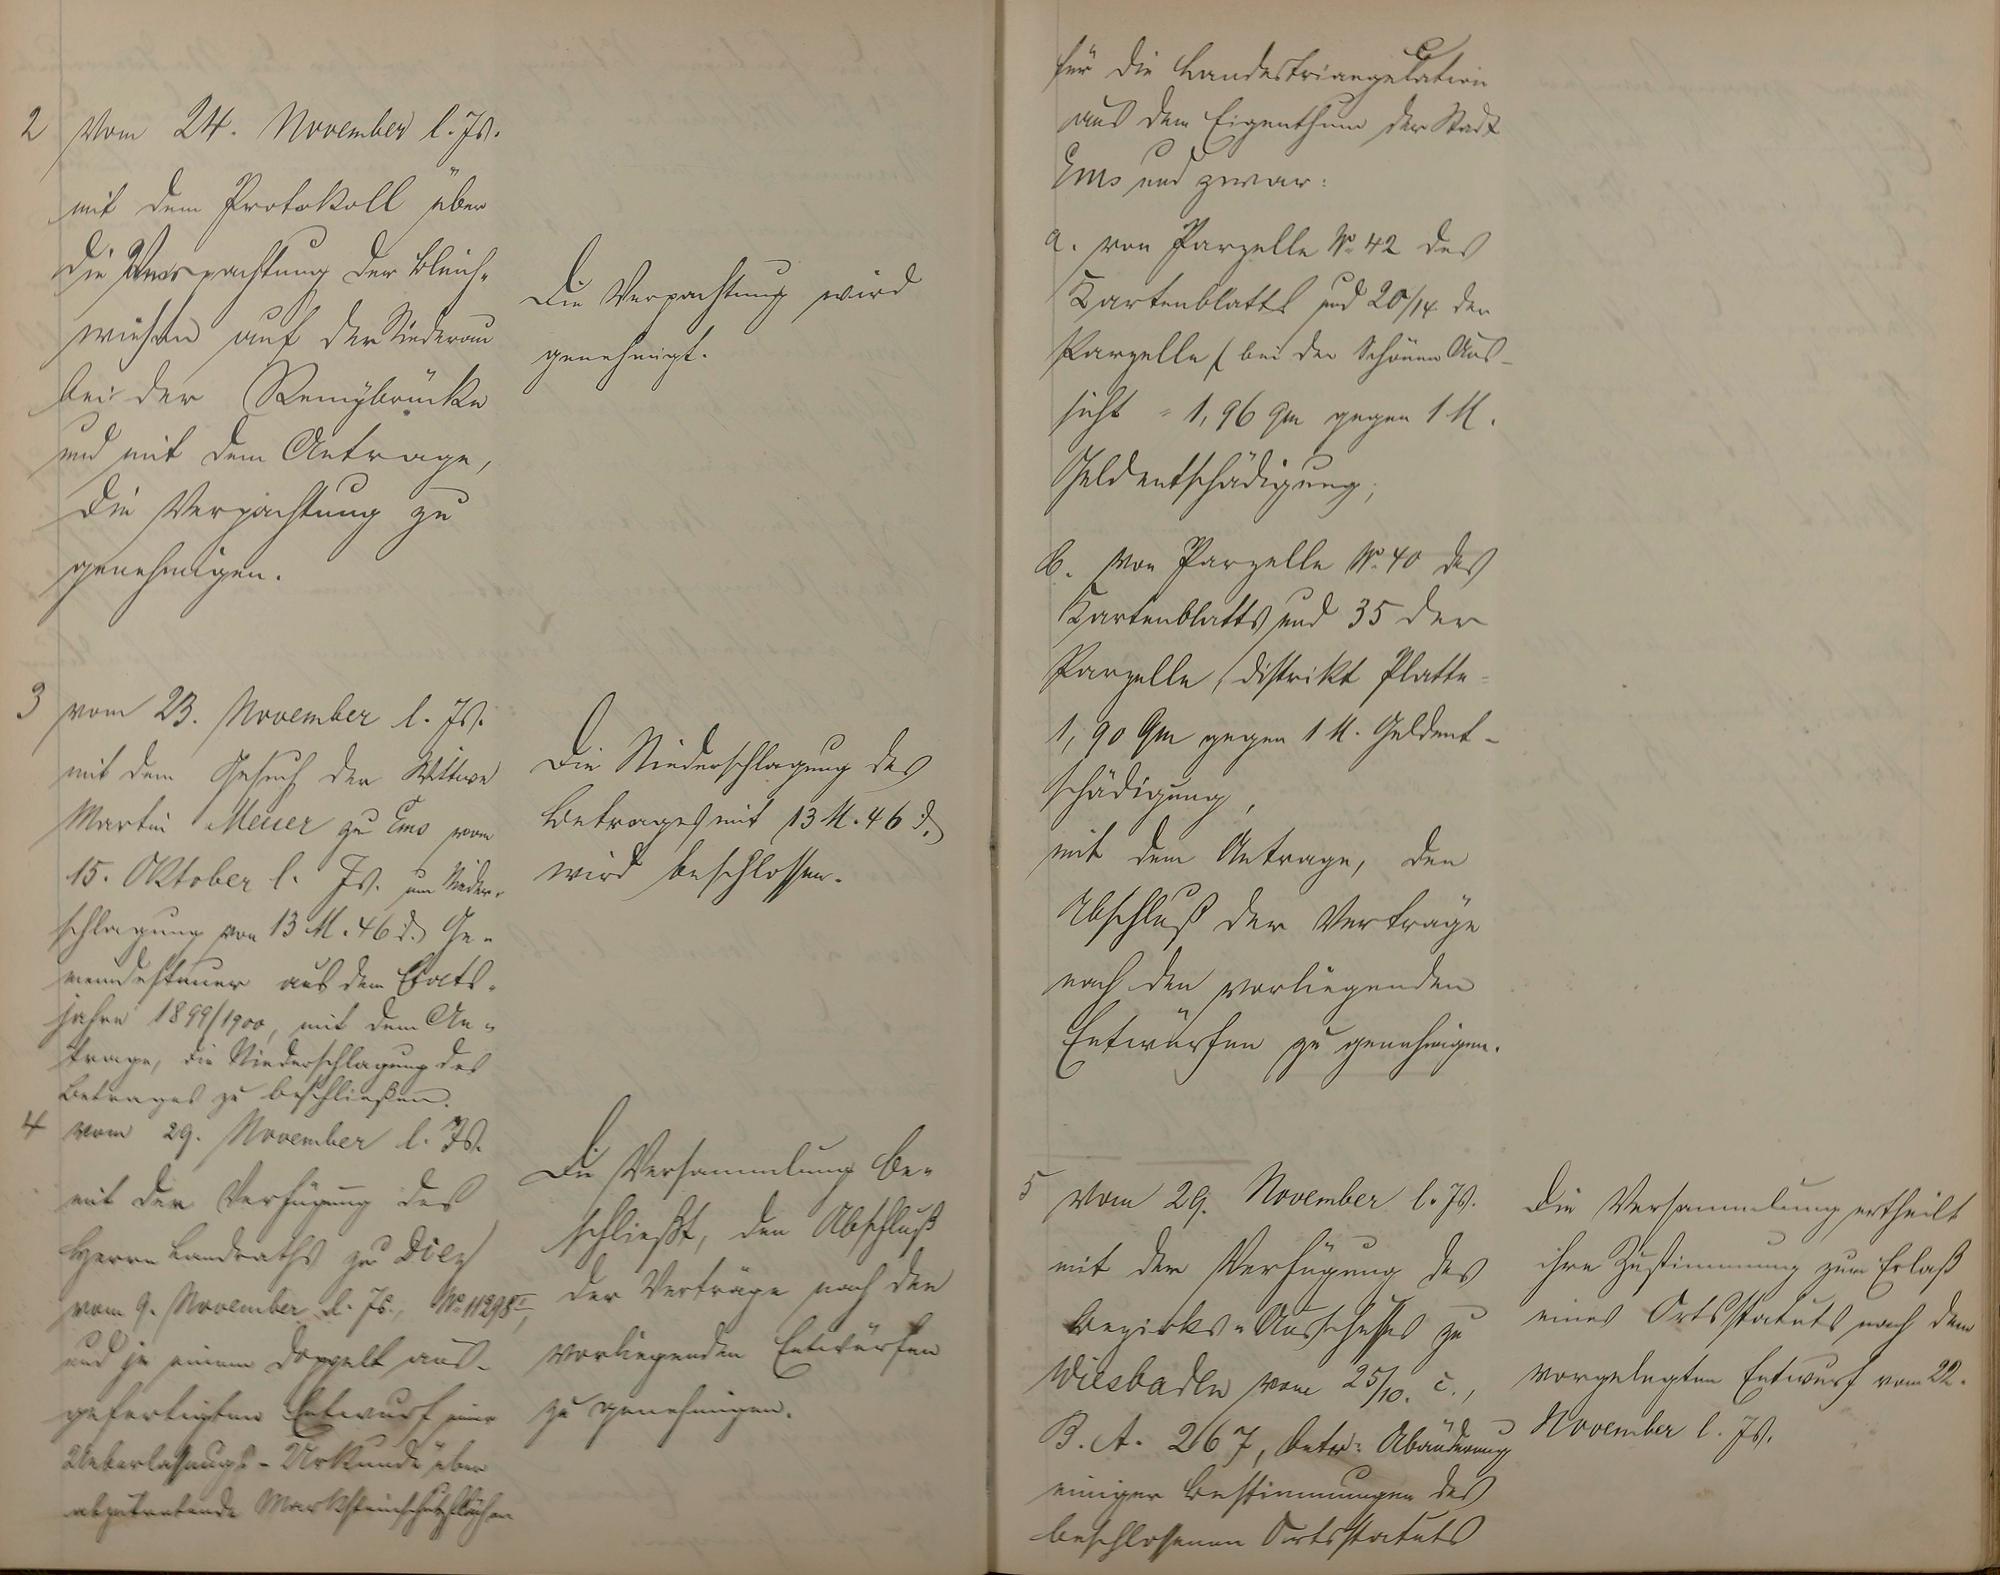 2 Vom 24. November l. Js.
mit dem Protokoll über
die Verpachtung der Bleich-
wiesen auf der Niederau
bei der Remybrücke
und mit dem Antrage,
die Verpachtung zu
genehmigen.
Die Verpachtung wird
genehmigt.
3 vom 23. November l. Js.
mit dem Gesuch der Wittwe
Martin Meuer zu Ems vom
15. Oktober l. Js. um Nieder-
schlagung von 13 M. 46 d. Ge-
meindesteuer aus dem Etats-
jahre 1899/1900, mit dem An-
trage, die Niederschlagung des
Betrages zu beschließen.
Die Niederschlagung des
Betrages mit 13 M. 46 d.
wird beschlossen.
4 vom 29. November l. Js.
mit der Verfügung des
Herrn Landraths zu Diez
vom 9. November l. Js., No 11298 I,
und je einem doppelt aus-
gefertigten Entwurf einer
Ueberlassungs-Urkunde über
abzutretende Marksteinschutzflächen
Die Versammlung be-
schließt, den Abschluß
der Verträge nach den
vorliegenden Entwürfen
zu genehmigen.
für die Landestriangulation
aus dem Eigenthum der Stadt
Ems und zwar:
a. von Parzelle No 42 des
Kartenblatts und 20/14 der
Parzelle (bei der Schönen Aus-
sicht = 1,96 qm gegen 1 M.
Geldentschädigung;
b. von Parzelle No 40 des
Kartenblatts und 35 der
Parzelle (Distrikt Platte =
1,90 qm gegen 1 M. Geldent-
schädigung,
mit dem Antrage, den
Abschluß der Verträge
nach den vorliegenden
Entwürfen zu genehmigen.
5 Vom 29. November l. Js.
mit der Verfügung des
Bezirks-Ausschusses zu
Wiesbaden vom 25/10. c.,
B. A. 267, betr. Abänderung
einiger Bestimmungen des
beschlossenen Ortsstatuts
Die Versammlung ertheilt
ihre Zustimmung zum Erlaß
eines Ortsstatuts nach dem
vorgelegten Entwurf vom 22.
November l. Js.